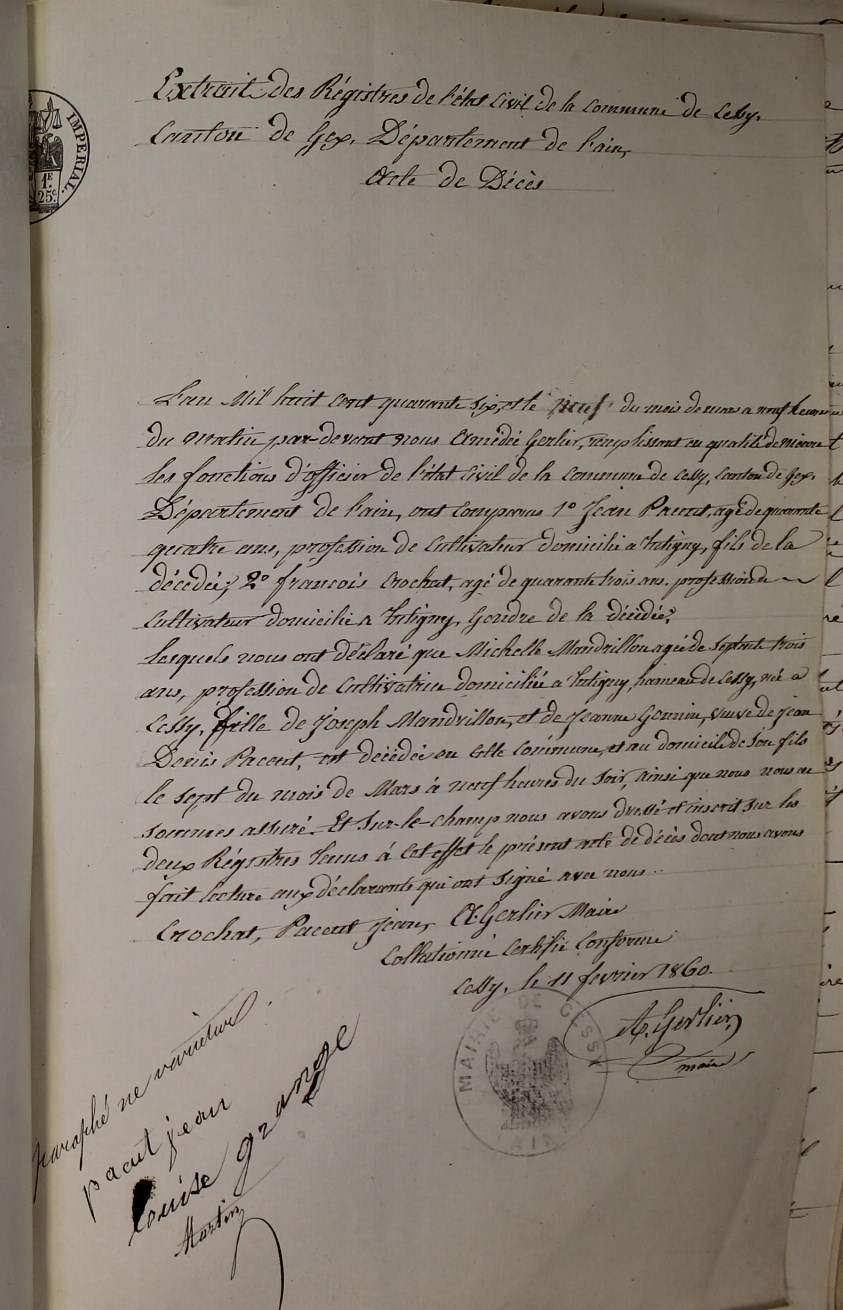 IMPERIAL.
1F
25c
Extrait des Régistres de l'état civil de la commune de Cessy.
Canton de Gex. Département de l'ain,
Acte de Décès
L'an Mil huit cent quarante six, et le neuf du mois de mars a neuf heures
du matin par-devant nous Amédé Gerlier, remplissant en qualité de maire
les fonctions d'officier de l'état civil de la commune de Cessy, Canton de Gex.
Département de l'ain, ont comparus 1° Jean Pacout, agé de quarante
quatre ans, profession de Cultivateur domicilié a Tutigny, fils de la
décédée; 2° françois Crochat, agé de quarante trois ans, profession de
Cultivateur domicilié a Tutigny, Gendre de la décédée;
Lesquels nous ont déclaré que Michelle Mandrillon agée de septante trois
ans, profession de Cultivatrice domiciliée a Tutigny, hameau de Cessy, née a
Cessy, fille de Joseph Mandrillon, et de Jeanne Gounin, veuve de Jean
Denis Pacout, est décédée en cette Commune, et au domicile de son fils
le sept du mois de Mars à neuf heures du soir, ainsi que nous nous en
sommes assuré. Et sur-le-champ nous avons dressé et inscrit sur les
deux Régistres tenus à cet effet le présent acte de décès dont nous avons
fait lecture aux déclarants qui ont signé avec nous..
Crochat, Pacout Jean, A. Gerlier Maire
Collationné Certifié Conforme
Cessy, le 11 fevrier 1860.
A. Gerlier,
maire
MAIRIE DE CESSY
AIN
paraphé ne varietur.
pacut jean
Louise grange
Martin